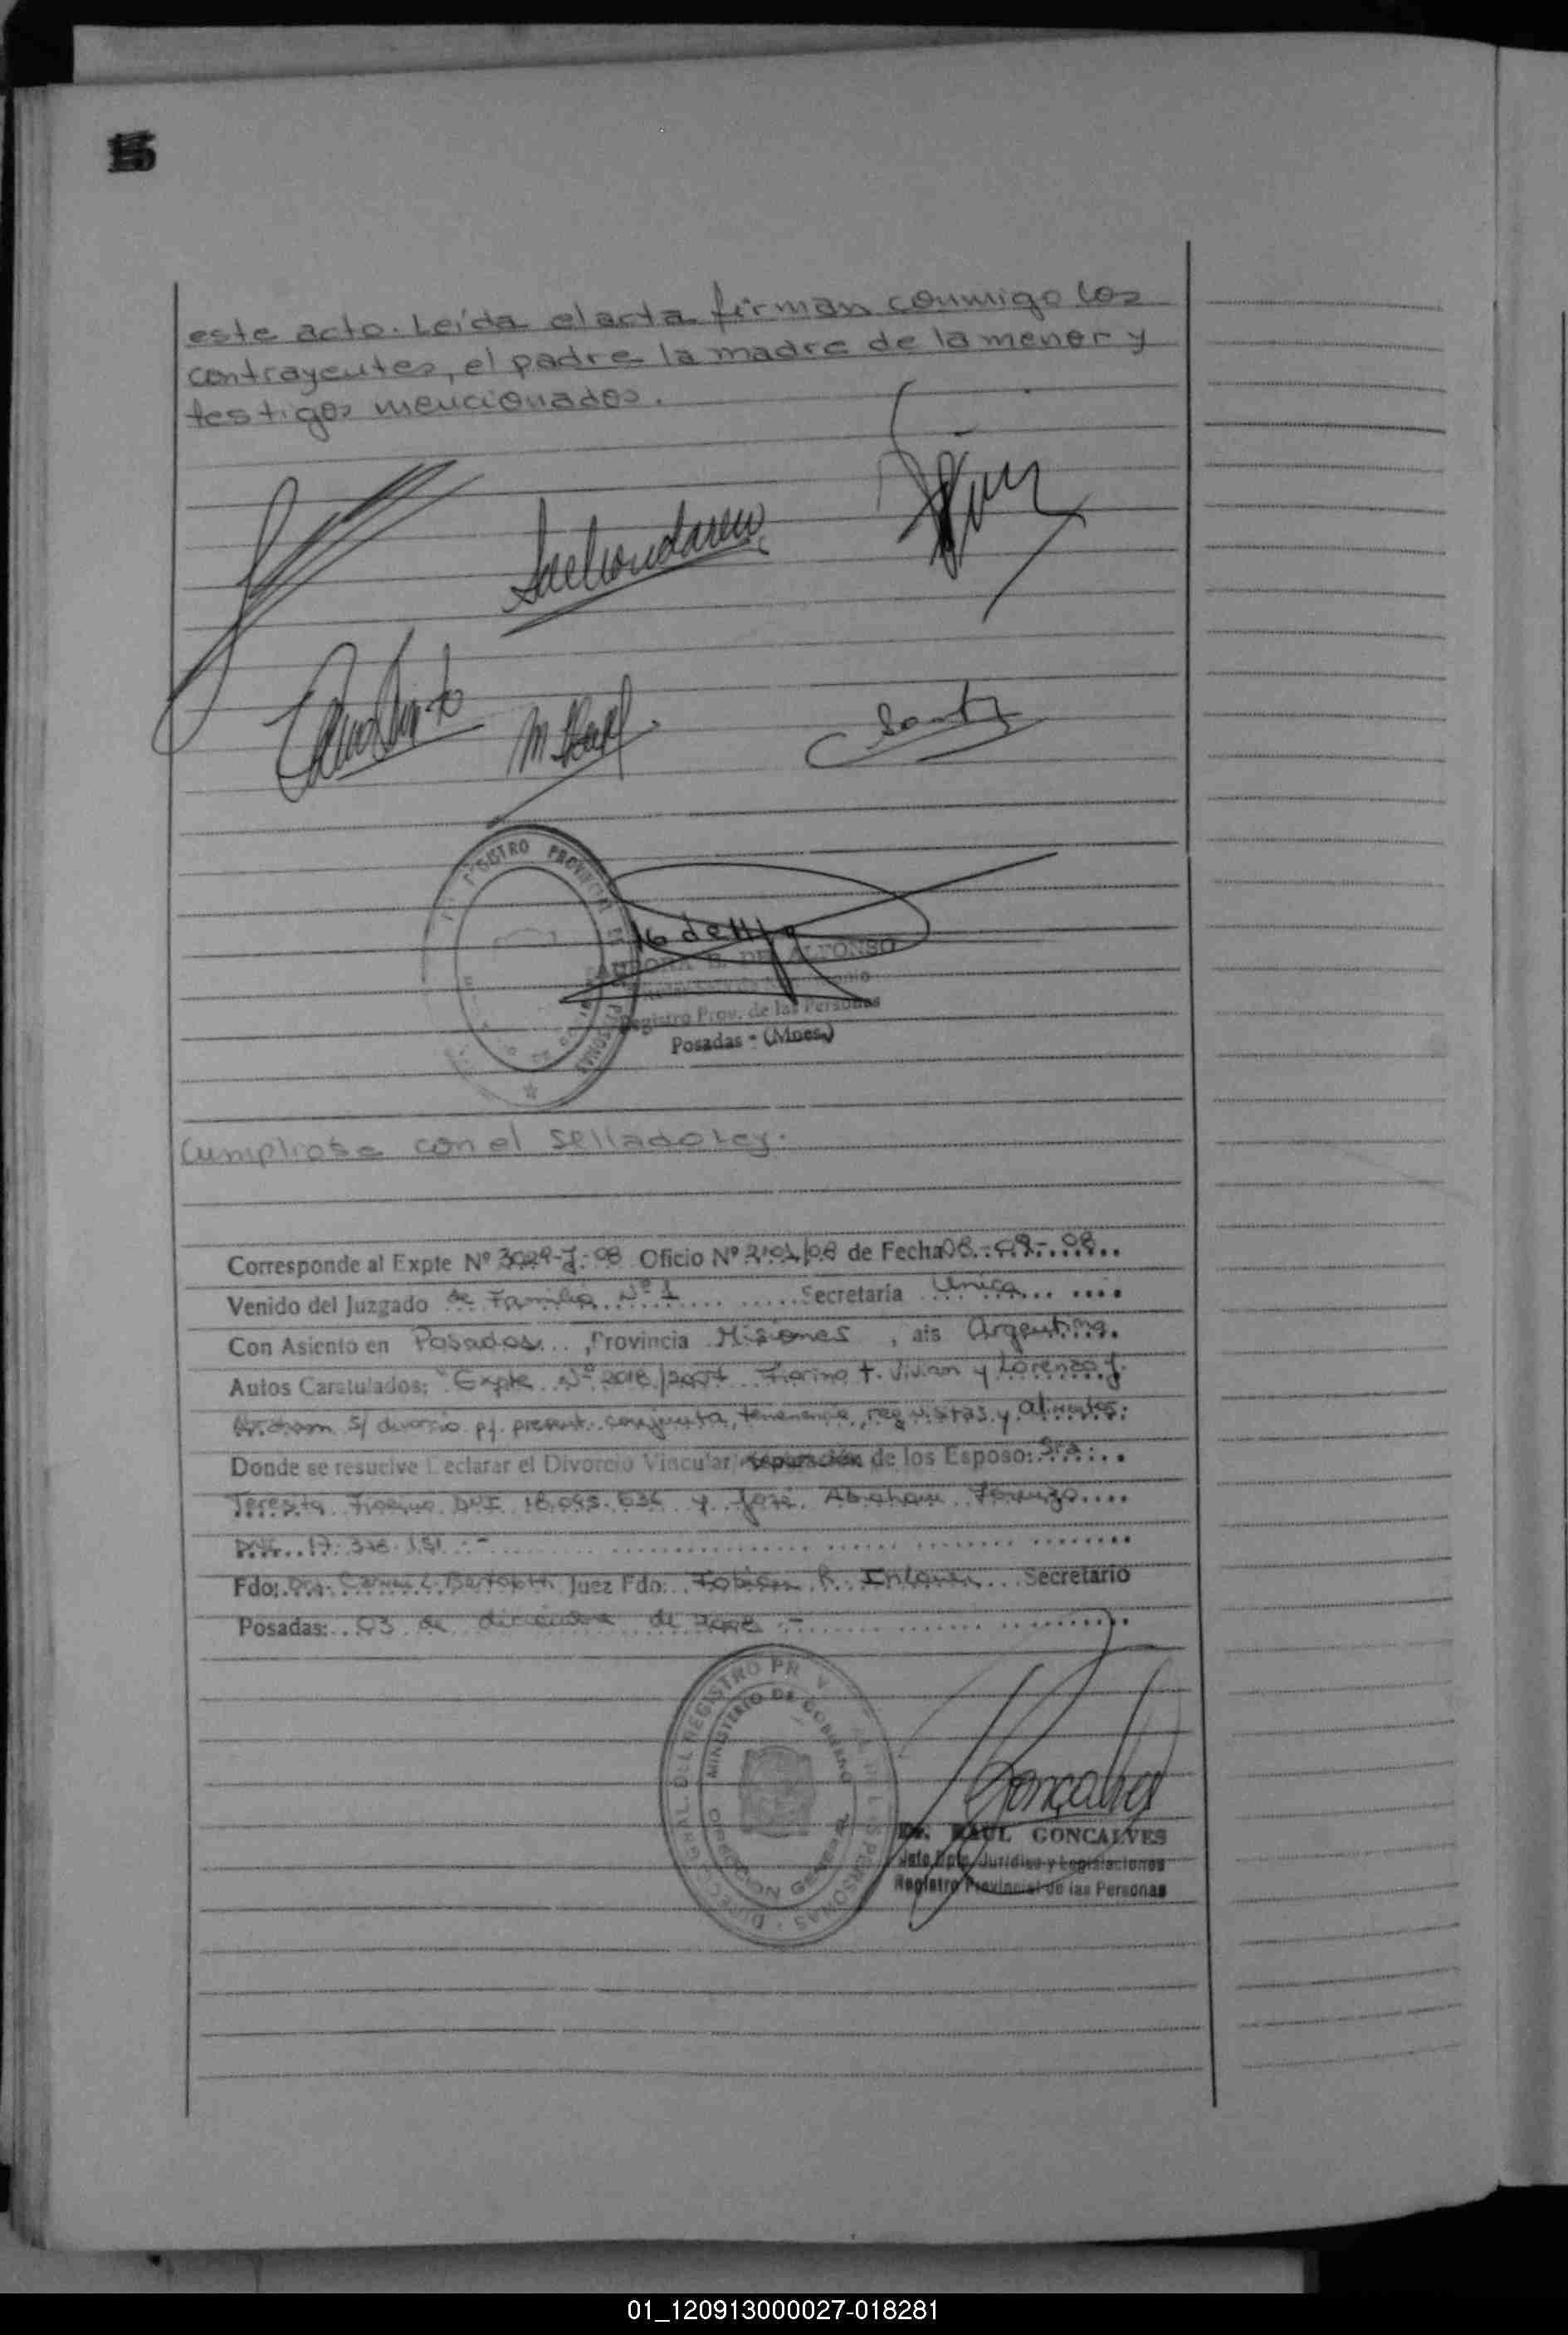 este acto. Leída el acta firman conmigo los
contrayentes, el padre la madre de la menor y
testigos mencionados.
REGISTRO PROVINCIAL
16 de
AURORA B. DE ALFONSO
Registro Prov. de las Personas
Posadas - (Mnes.)
Cumplirase con el sellado Ley.
Corresponde al Expte Nº 3029-J-08 Oficio Nº 2101/08 de Fecha 08-09-08
Venido del Juzgado de Familia Nº 1 Secretaría Unica
Con Asiento en Posadas, Provincia Misiones, ais Argentina.
Autos Caratulados: "Expte Nº 2018/2007 Fiorino T. Vivian y Lorenzo J.
Abraham s/ divorcio p/. present. conjunta, tenencia, reg visitas y alimentos.
Donde se resuelve Declarar el Divorcio Vincular separación de los Esposo: Sra.
Teresita Fiorino DNI 18.045.
y José Abraham Lorenzo
DNI 17.376.151.-
Fdo: Dra. Juez Fdo: Fabián R. Secretario
Posadas: 03 de diciembre de 2008.-
DIRECC. GRAL. DEL REGISTRO PROV. DE LAS PERSONAS
MINISTERIO DE GOBIERNO
DIRECCION GENERAL
Gonçalves
Dr. RAUL GONCALVES
Jefe Dpto. Jurídico y Legislaciones
Registro Provincial de las Personas
01_120913000027-018281